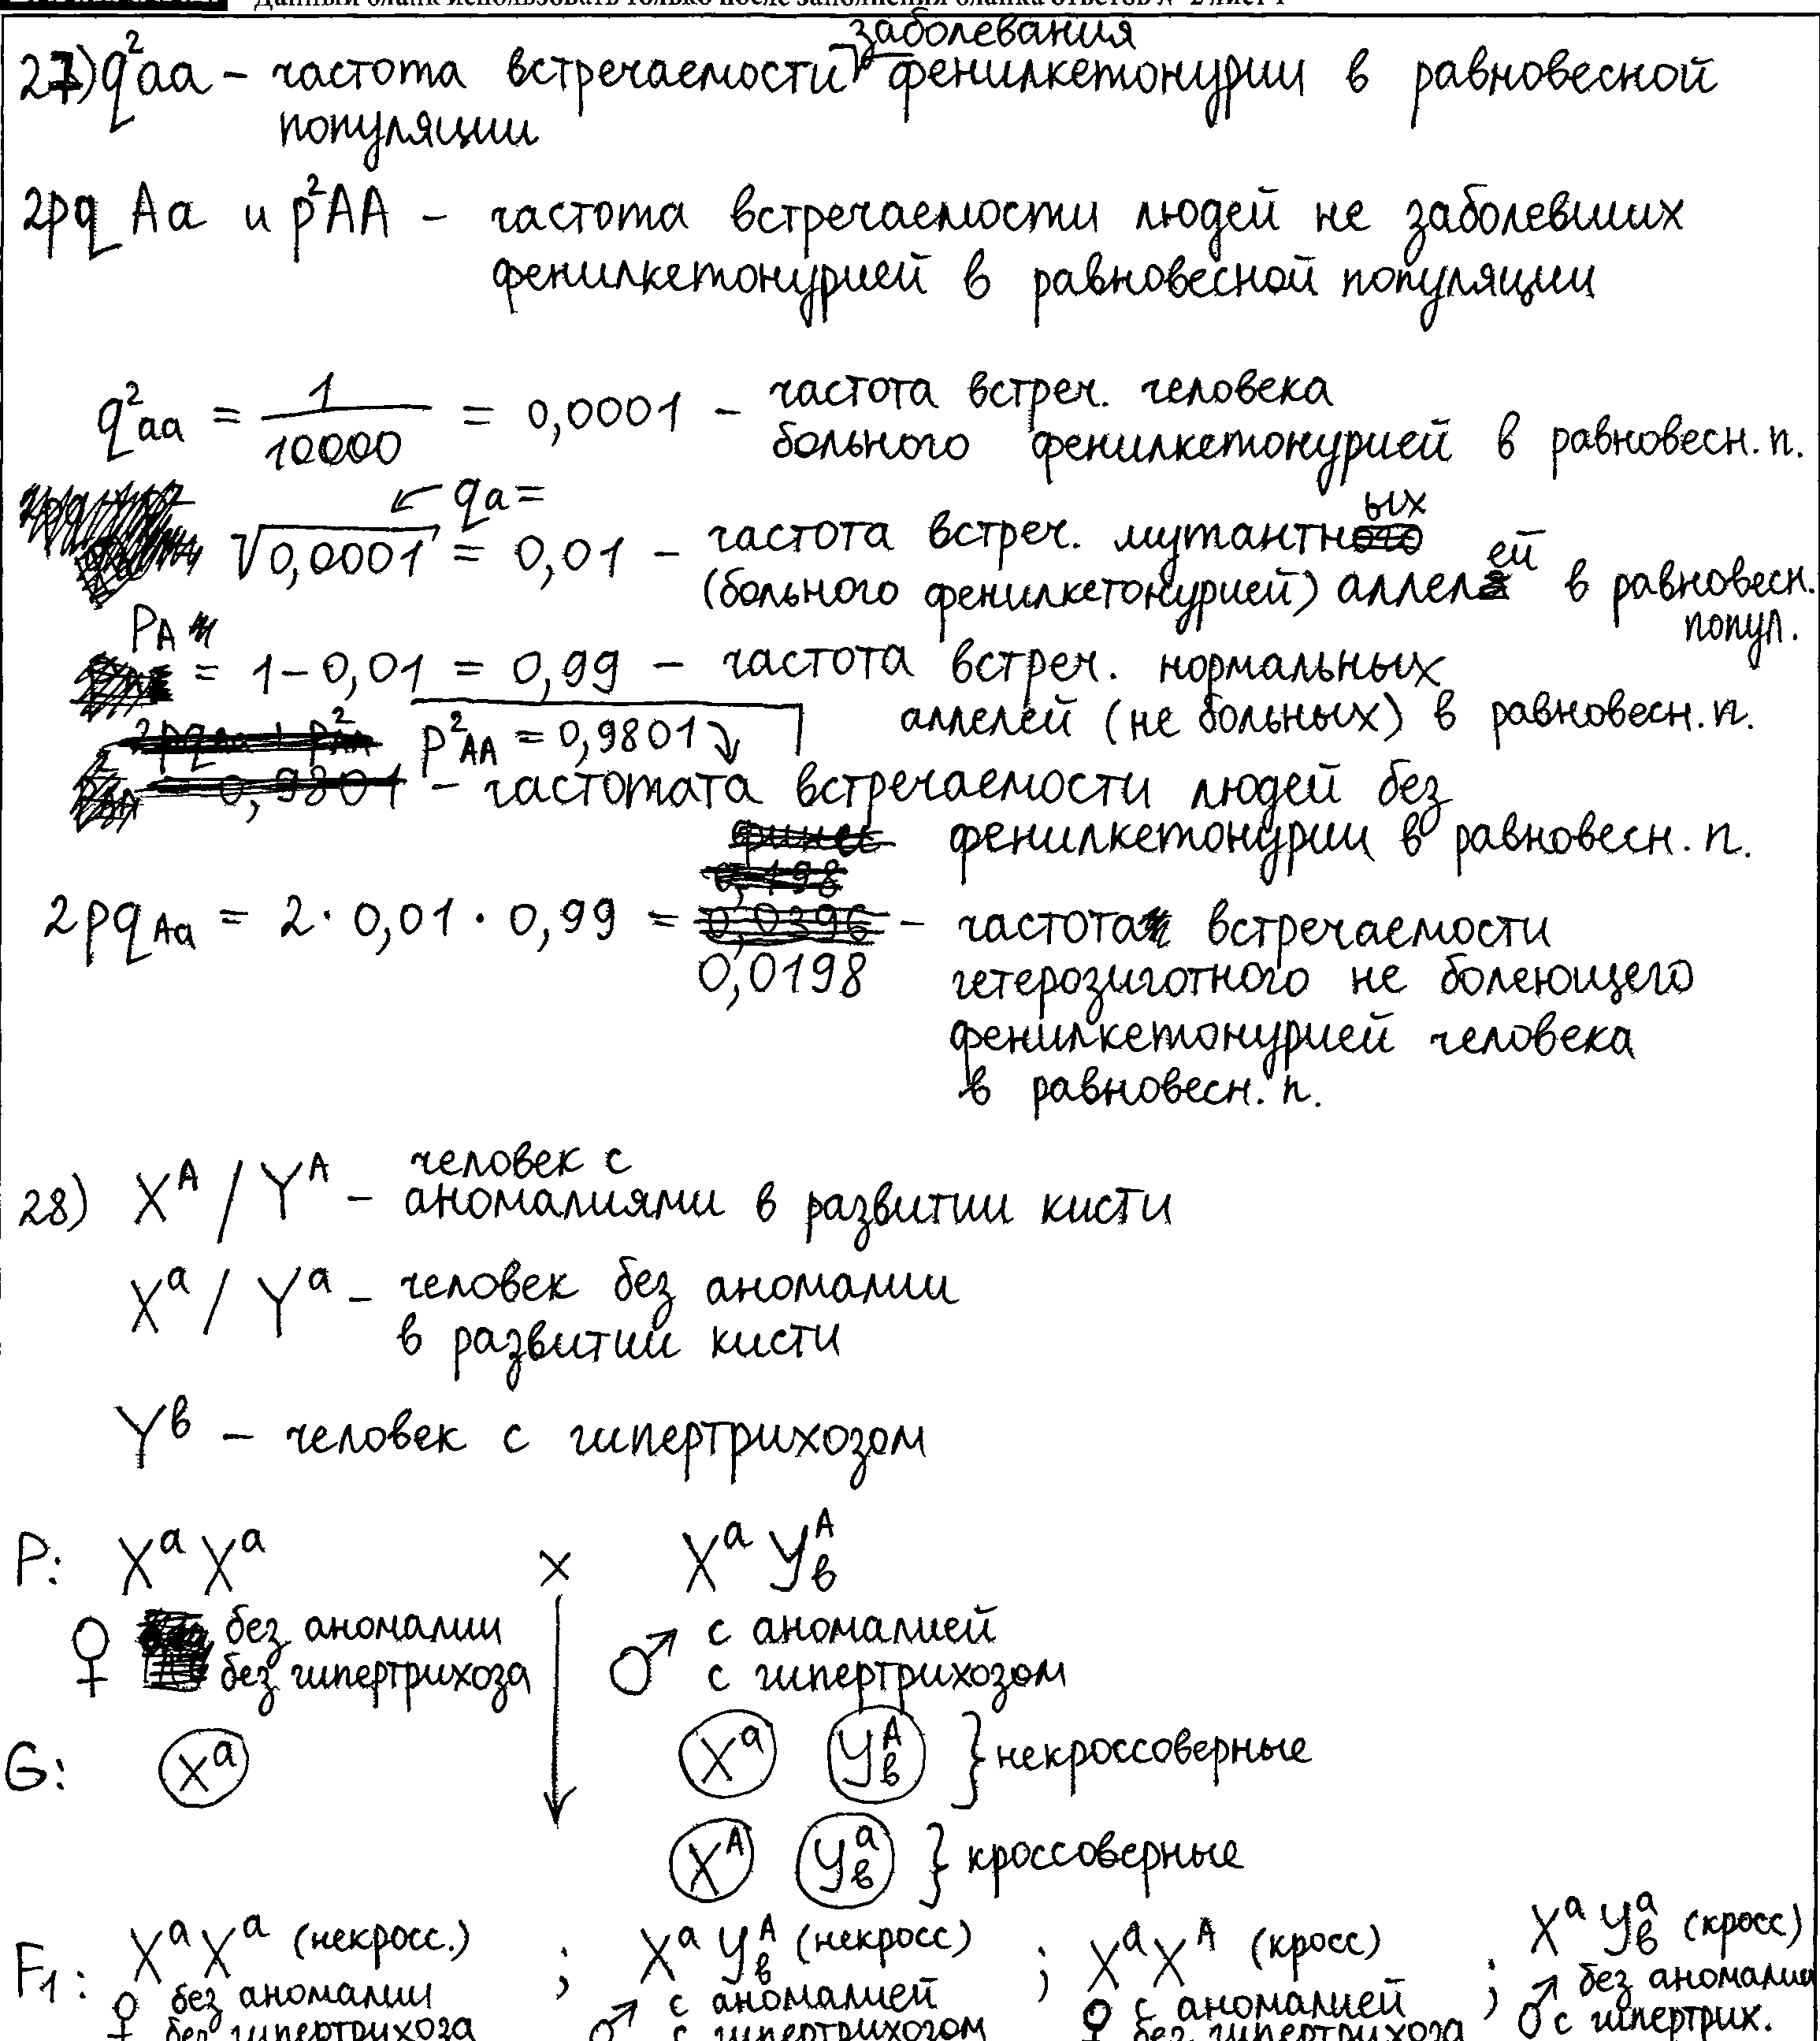 Данный бланк использовать только после заполнения бланка ответов № 2 лист 1
заболевания
27) q²aa – частота встречаемости фенилкетонурии в равновесной
популяции
2pq Aa и p²AA – частота встречаемости людей не заболевших
фенилкетонурией в равновесной популяции
q²aa = 1/10000 = 0,0001 – частота встреч. человека
больного фенилкетонурией в равновесн. п.
qa =
√0,0001 = 0,01 – частота встреч. мутантных
(больного фенилкетонурией) аллелей в равновесн.
попул.
PA = 1 – 0,01 = 0,99 – частота встреч. нормальных
аллелей (не больных) в равновесн. п.
p²AA = 0,9801
– частотата встречаемости людей без
фенилкетонурии в равновесн. п.
2pqAa = 2 · 0,01 · 0,99 = 0,0198 – частота встречаемости
гетерозиготного не болеющего
фенилкетонурией человека
в равновесн. п.
28) X^A / Y^A – человек с
аномалиями в развитии кисти
X^a / Y^a – человек без аномалии
в развитии кисти
Y^в – человек с гипертрихозом
P: X^a X^a × X^a Y^A_в
♀ без аномалии ♂ с аномалией
без гипертрихоза с гипертрихозом
G: X^a X^a Y^A_в } некроссоверные
X^A Y^a_в } кроссоверные
F1: X^a X^a (некросс.) ; X^a Y^A_в (некросс) ; X^a X^A (кросс) ; X^a Y^a_в (кросс)
♀ без аномалии ♂ с аномалией ♀ с аномалией ♂ без аномалии
без гипертрихоза с гипертрихозом без гипертрихоза с гипертрих.